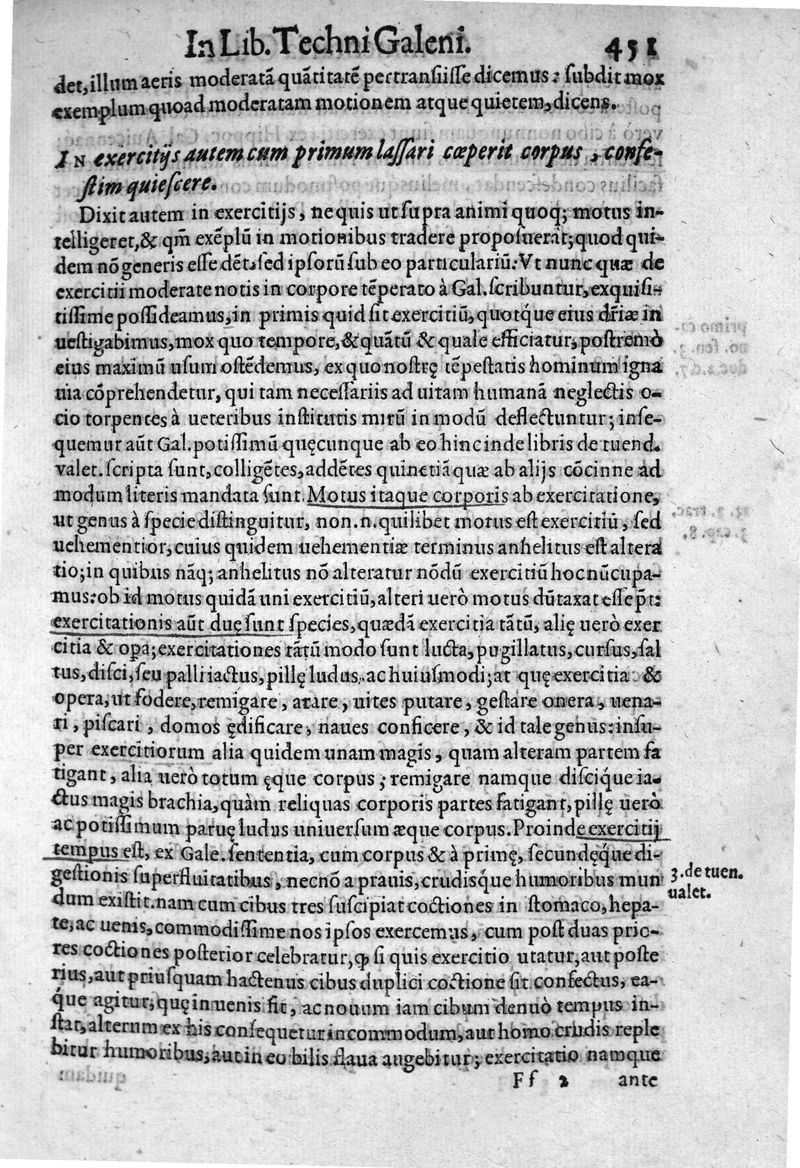 In Lib. Techni Galeni. 451
det, illum aeris moderatā quātitatē pertransiisse dicemus: subdit mox
exemplum quoad moderatam motionem atque quietem, dicens.
IN exercitijs autem cum primum lassari cœperit corpus, confe-
stim quiescere.
Dixit autem in exercitijs, ne quis ut supra animi quoq; motus in-
telligeret, & qm̄ exēplū in motionibus tradere proposuerat; quod qui-
dem nō generis esse dēt, sed ipsorū sub eo particulariū: Vt nunc quæ de
exercitii moderate notis in corpore tēperato à Gal. scribuntur, exquisi-
tissime possideamus, in primis quid sit exercitiū, quotq́ue eius dr̄iæ in
uestigabimus, mox quo tempore, & quātū & quale efficiatur, postremò
eius maximū usum ostēdemus, ex quo nostrę tēpestatis hominum igna
uia cōprehendetur, qui tam necessariis ad uitam humanā neglectis o-
cio torpentes à ueteribus institutis mirū in modū deflectuntur; inse-
quemur aūt Gal. potissimū quęcunque ab eo hinc inde libris de tuend.
valet. scripta sunt, colligētes, addētes quinetiā quæ ab alijs cōcinne ad
modum literis mandata sunt. Motus itaque corporis ab exercitatione,
ut genus à specie distinguitur, non .n. quilibet motus est exercitiū, sed
uehementior, cuius quidem uehementiæ terminus anhelitus est altera
tio; in quibus nāq; anhelitus nō alteratur nōdū exercitiū hoc nūcupa-
mus: ob id motus quidā uni exercitiū, alteri uerò motus dūtaxat esse pt̄:
exercitationis aūt duę sunt species, quædā exercitia tātū, alię uerò exer
citia & opa; exercitationes tātū modo sunt lucta, pugillatus, cursus, sal
tus, disci, seu palli iactus, pillę ludus, ac huiusmodi; at quę exercitia &
opera, ut fodere, remigare, arare, uites putare, gestare onera, uena-
ri, piscari, domos ędificare, naues conficere, & id tale genus: insu-
per exercitiorum alia quidem unam magis, quam alteram partem fa
tigant, alia uerò totum ęque corpus; remigare namque discique ia-
ctus magis brachia, quàm reliquas corporis partes fatigant, pillę uerò
ac potissimum paruę ludus uniuersum æque corpus. Proinde exercitij
tempus est, ex Gale. sententia, cum corpus & à primę, secundęq́ue di-
gestionis superfluitatibus, necnō a prauis, crudisq́ue humoribus mun
3. de tuen.
ualet.
dum existit. nam cum cibus tres suscipiat coctiones in stomaco, hepa-
te, ac uenis, commodissime nos ipsos exercemus, cum post duas prio-
res coctiones posterior celebratur, ꝙ si quis exercitio utatur, aut poste
rius, aut priusquam hactenus cibus duplici coctione sit confectus, ea-
q́ue agitur, quę in uenis fit, ac nouum iam cibum denuò tempus in-
stat, alterum ex his consequetur incommodum, aut homo crudis reple
bitur humoribus, aut in eo bilis flaua augebitur; exercitatio namque
Ff 2 ante